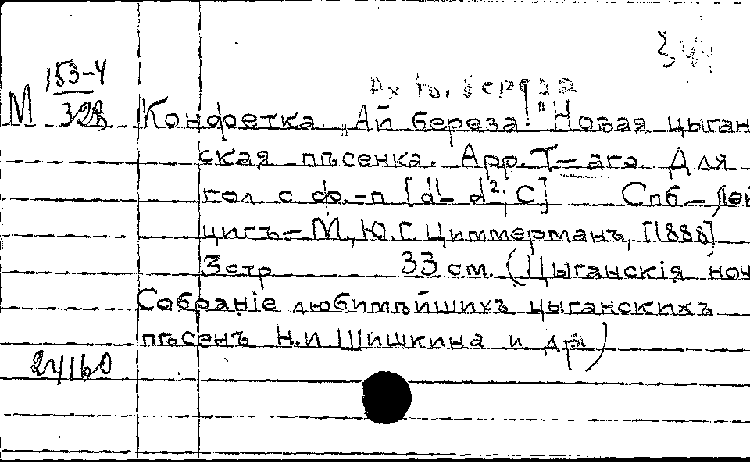 344
153-4
Ах ты, береза
М 328 Конфетка „Ай береза!" Новая цыган
ская пѣсенка. Арр. Т-аго. Для
гол с ф.-п [d¹- d²; C] Спб-Лей
цигъ-М, Ю.Г. Циммерманъ, [1888]
3 стр 33 см. (Цыганскія ноч
Собраніе любимѣйшихъ цыганскихъ
пѣсенъ Н.И Шишкина и др)
24160